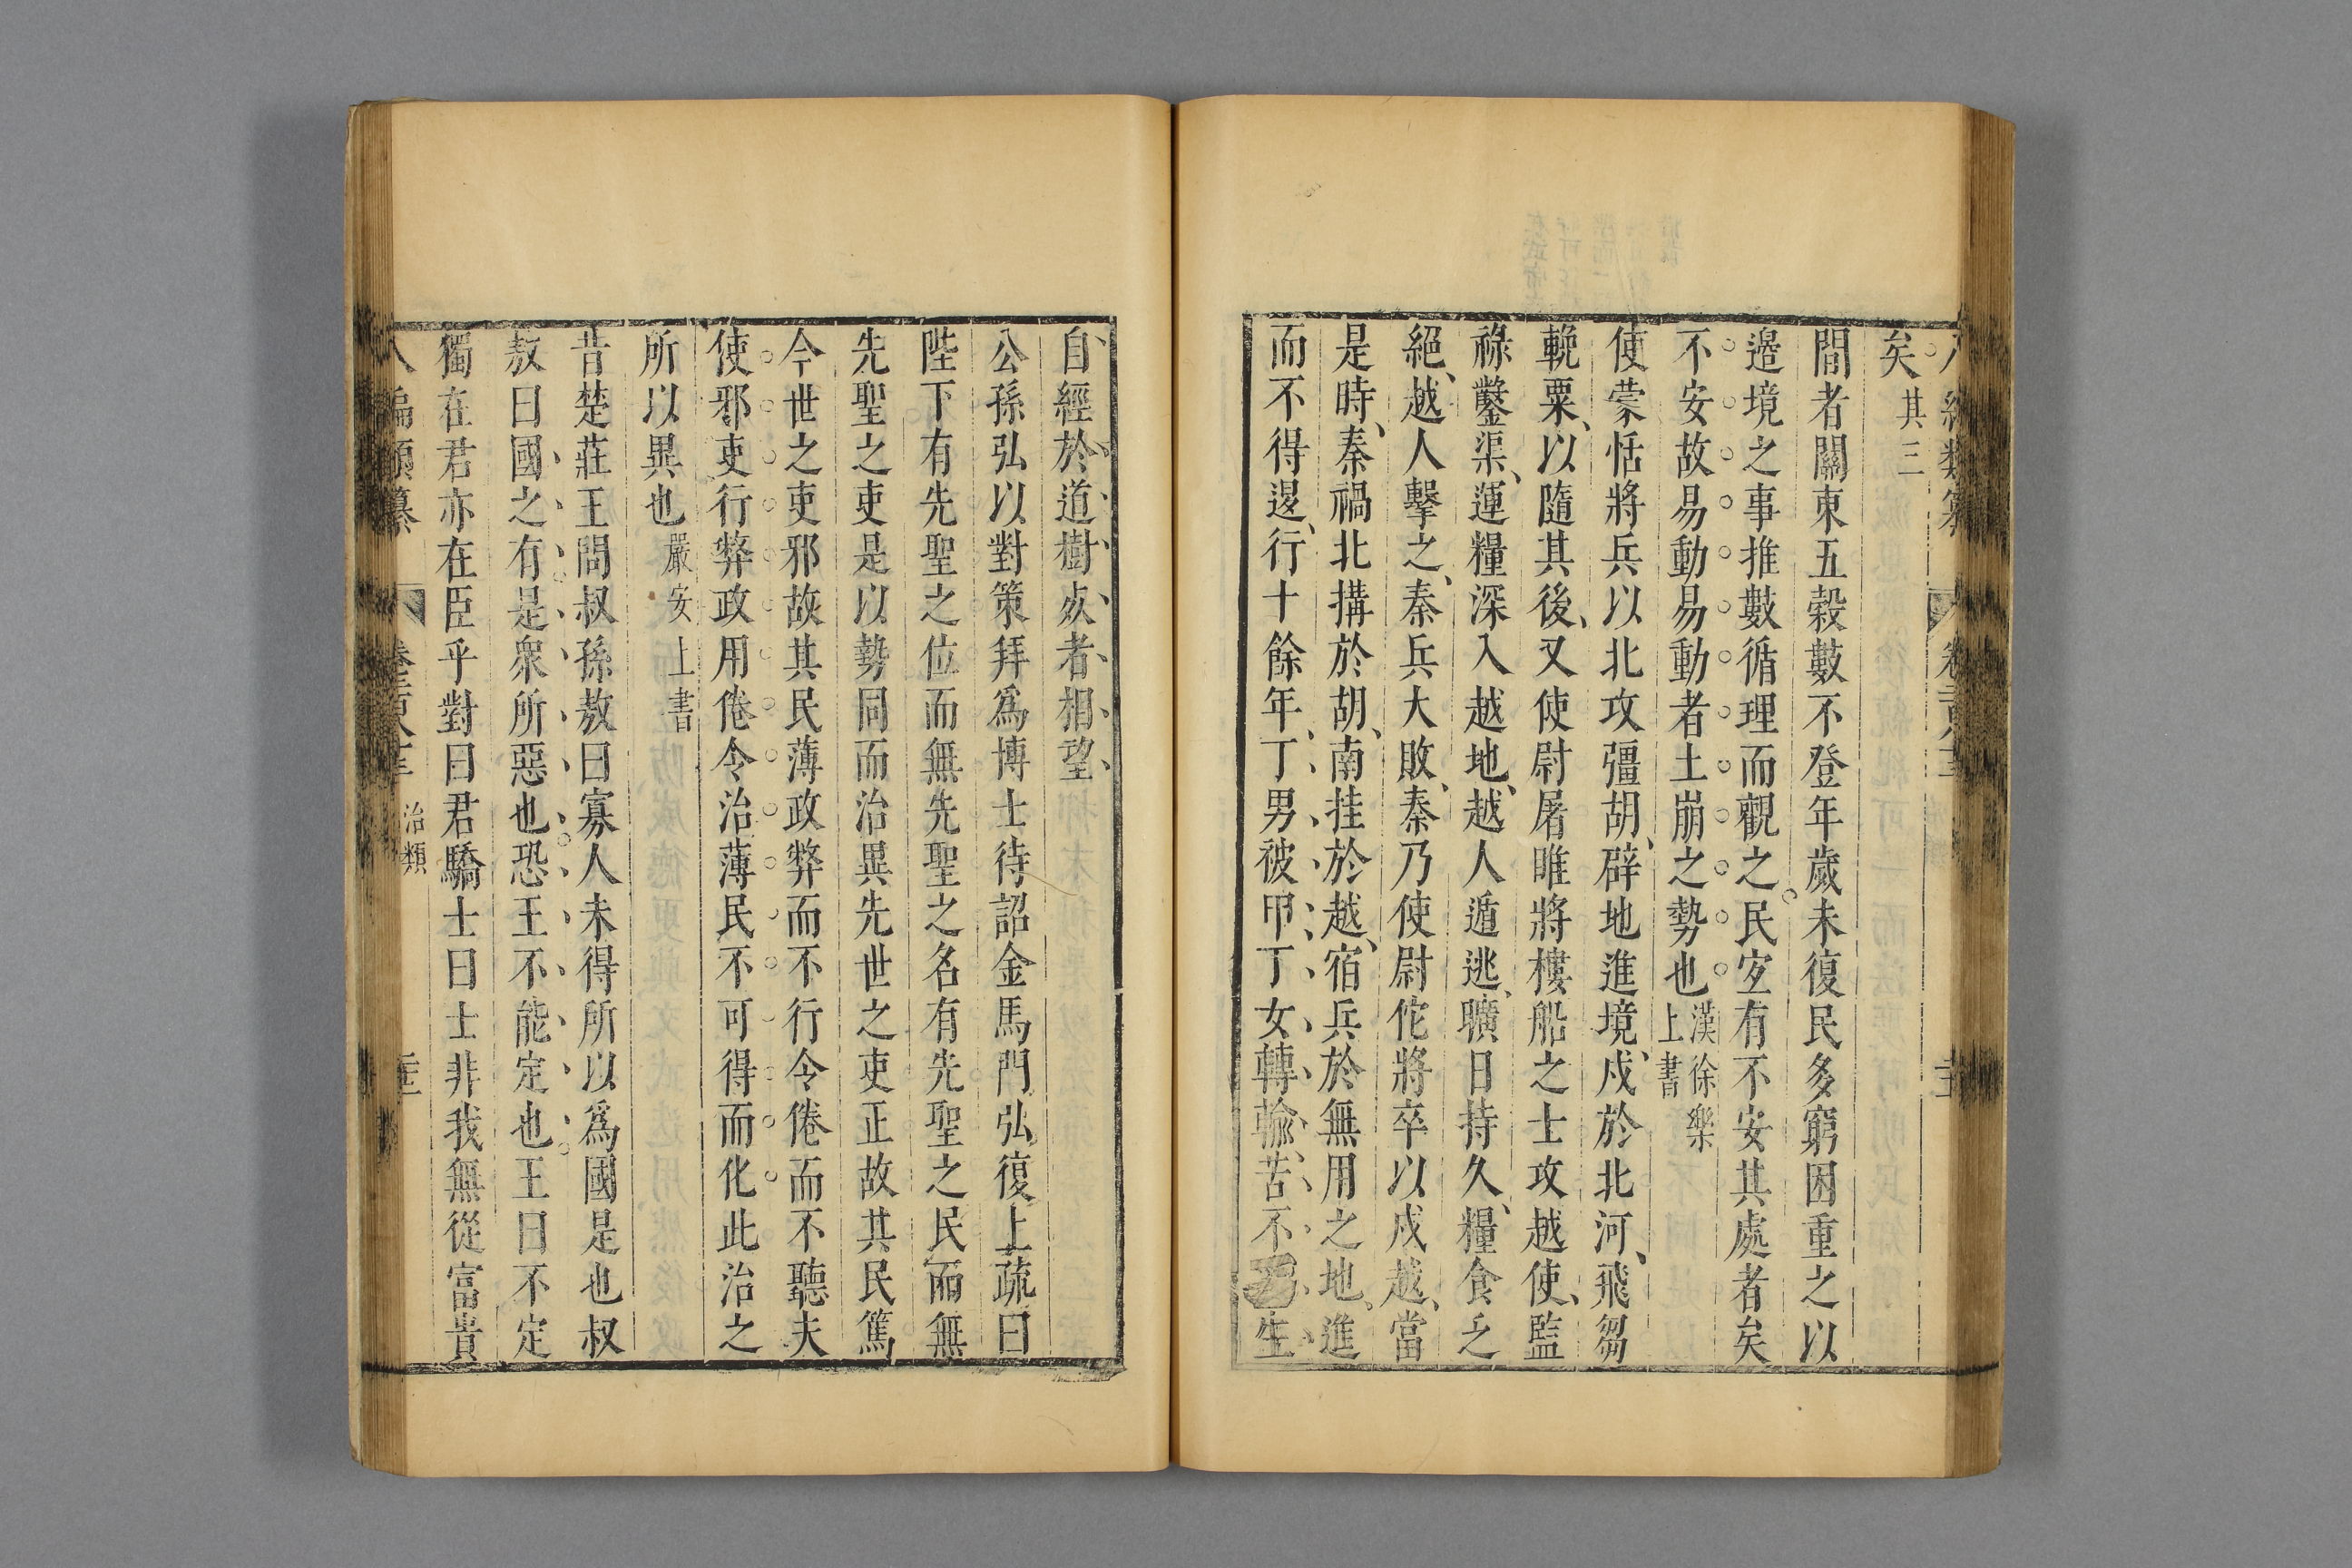 矣其三
間者關東五穀數不登年歲未復民多窮困重之以
邊境之事推數循理而觀之民宜有不安其處者矣
不安故易動易動者土崩之勢也漢徐樂上書
使蒙恬將兵以北攻彊胡辟地進境戍於北河飛芻
輓粟以隨其後又使尉屠睢將樓船之士攻越使監
祿鑿渠運糧深入越地越人遁逃曠日持久糧食乏
絕越人擊之秦兵大敗秦乃使尉佗將卒以戍越當
是時秦禍北搆於胡南挂於越宿兵於無用之地進
而不得退行十餘年丁男被甲丁女轉輸苦不生
自經於道樹死者相望
公孫弘以對策拜爲博士待詔金馬門弘復上疏曰
陛下有先聖之位而無先聖之名有先聖之民而無
先聖之吏是以勢同而治異先世之吏正故其民篤
今世之吏邪故其民薄政弊而不行令倦而不聽夫
使邪吏行弊政用倦令治薄民不可得而化此治之
所以異也嚴安上書
昔楚莊王問叔孫敖曰寡人未得所以爲國是也叔
敖曰國之有是衆所惡也恐王不能定也王曰不定
獨在君亦在臣乎對曰君驕士曰士非我無從富貴
八編類纂 治類